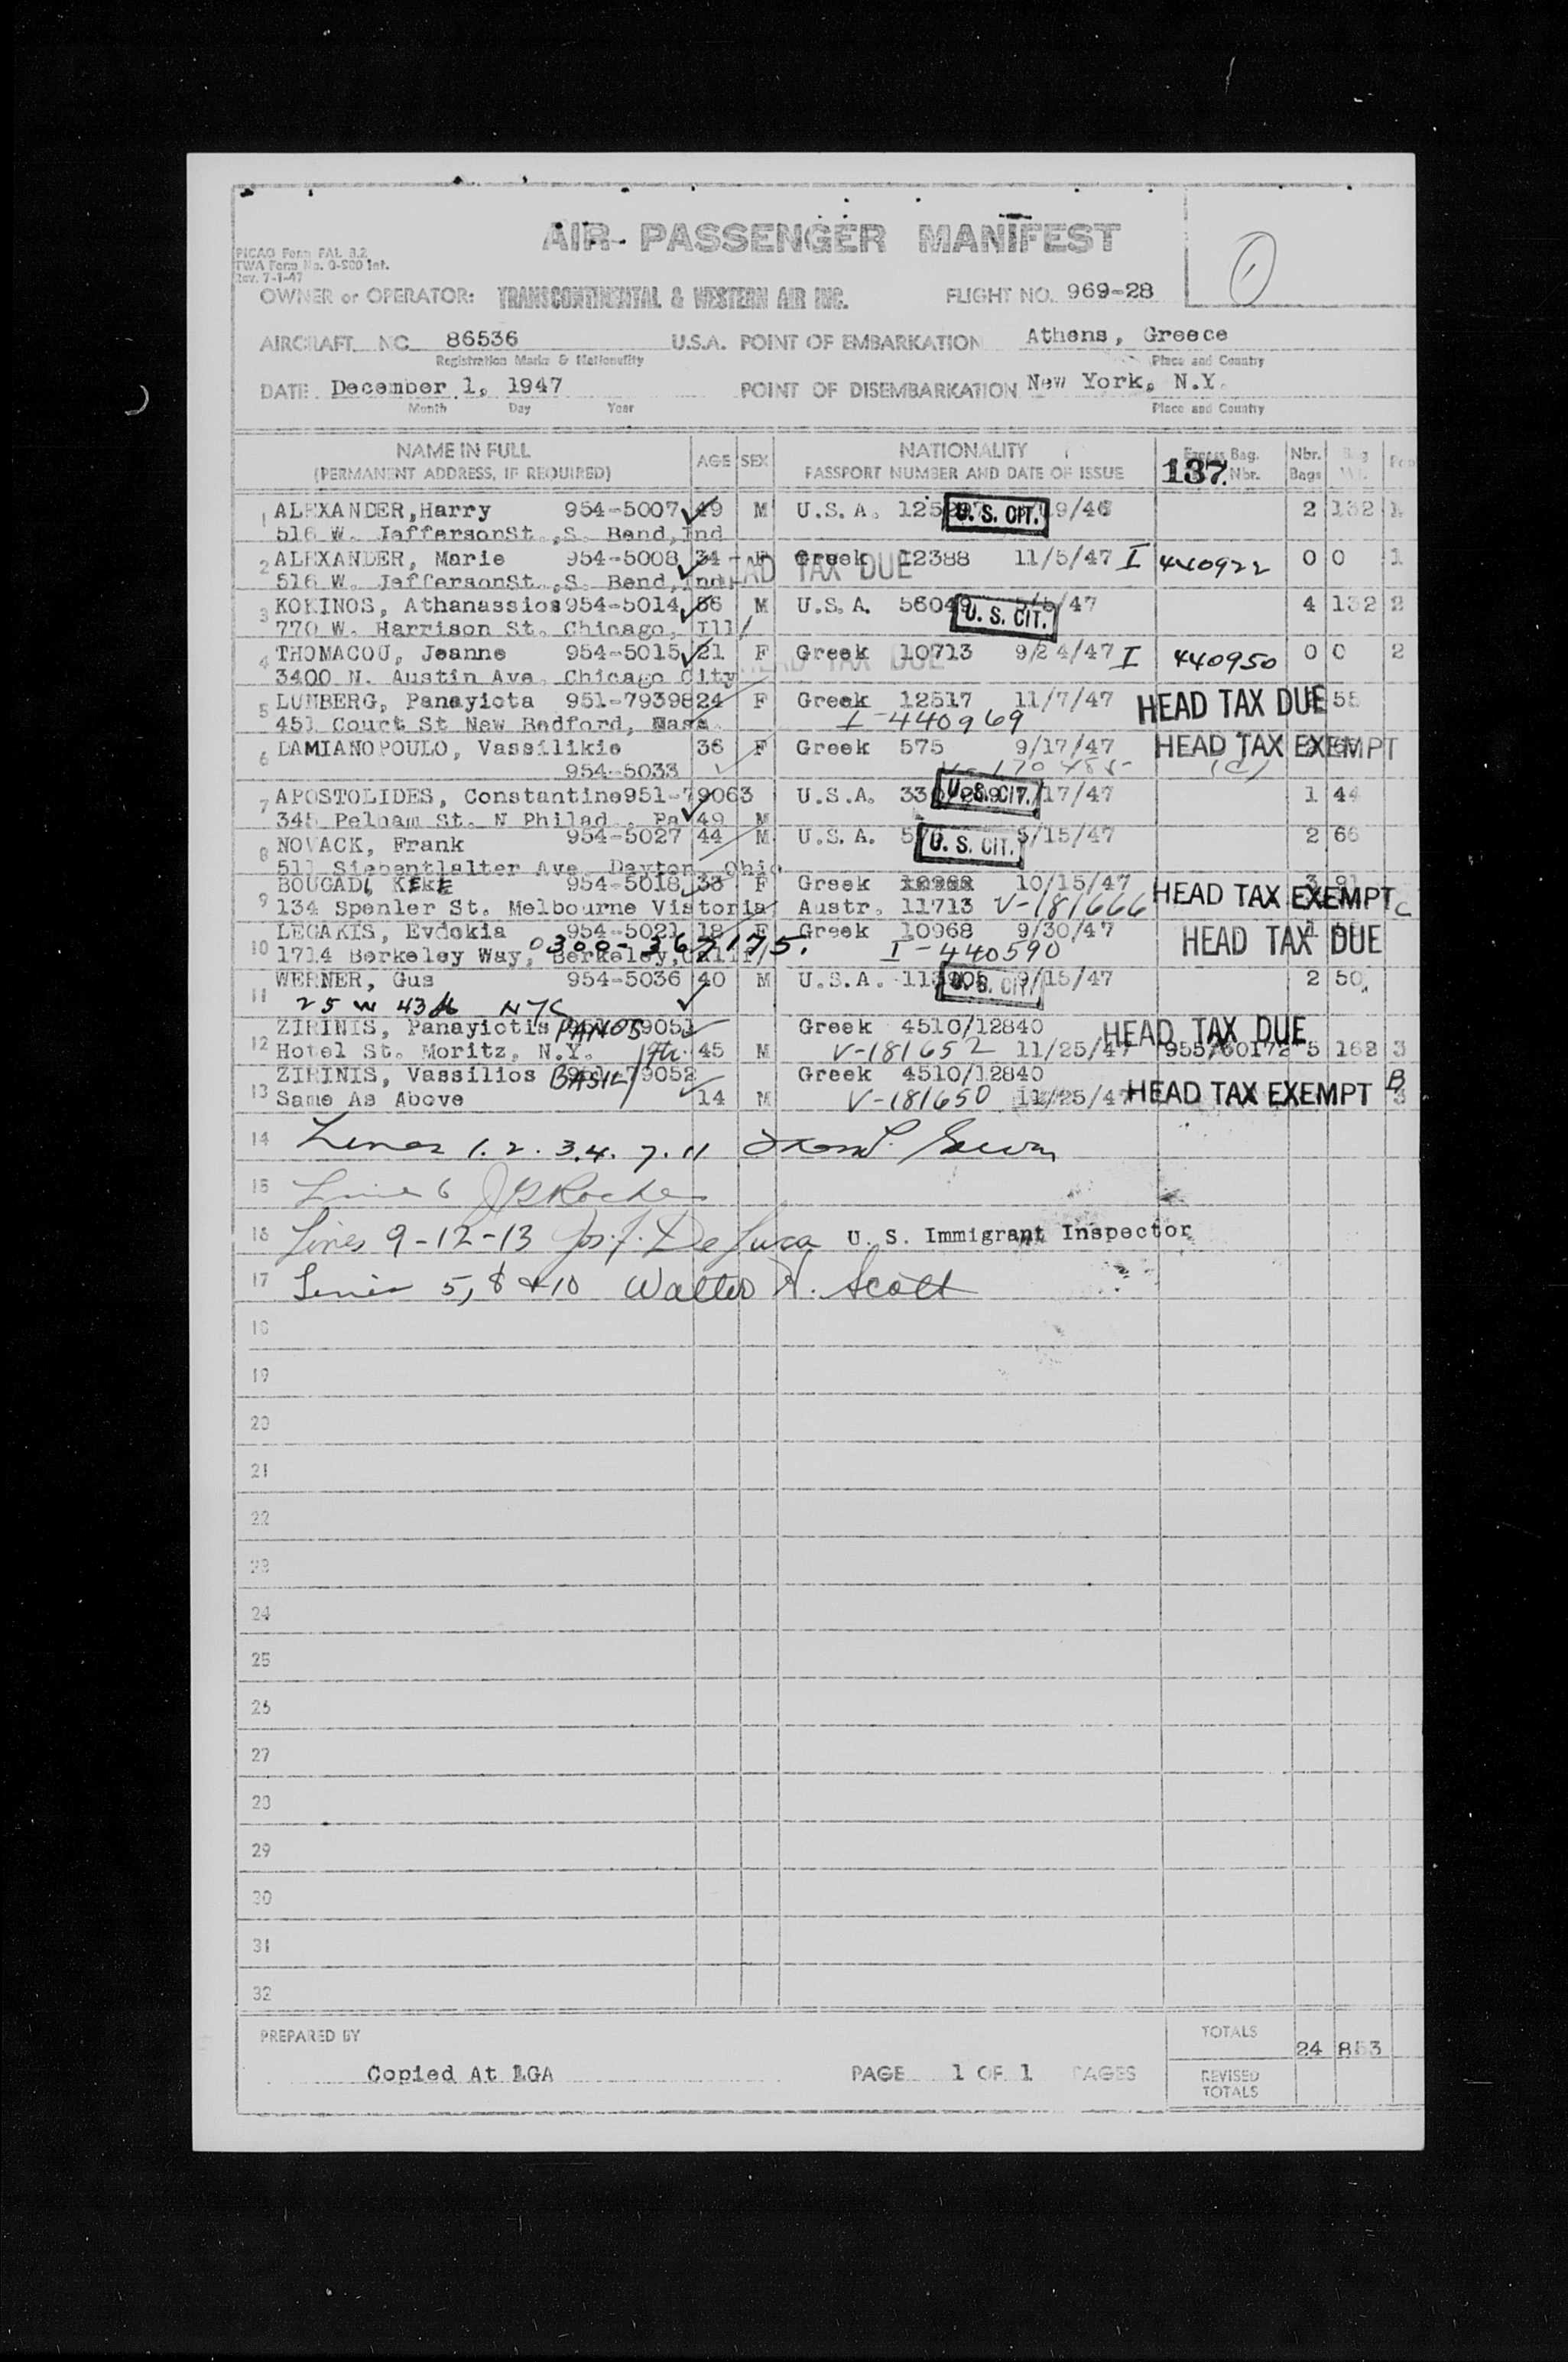 AIR PASSENGER MANIFEST
PICAO Form FAL 3.2
TWA Form No. O-500 Int.
Rev. 7-1-47
OWNER or OPERATOR: TRANSCONTINENTAL & WESTERN AIR INC. FLIGHT NO. 969-28
1
AIRCRAFT NO 86536 U.S.A. POINT OF EMBARKATION Athens, Greece
Registration Marks & Nationality Place and Country
DATE December 1, 1947 POINT OF DISEMBARKATION New York, N.Y.
Month Day Year Place and Country
NAME IN FULL (PERMANENT ADDRESS, IF REQUIRED) AGE SEX NATIONALITY PASSPORT NUMBER AND DATE OF ISSUE Excess Bag. Nbr. 137. Nbr. Bags Bag Wt.
1 ALEXANDER,Harry 954-5007 49 M U.S.A. U.S. CIT. 2 132 1
516 W. JeffersonSt.,S. Bend,Ind
2 ALEXANDER, Marie 954-5008 34 F Greek 12388 11/5/47 I 440922 0 0 1
516 W. JeffersonSt.,S. Bend,Ind. HEAD TAX DUE
3 KOKINOS, Athanassios954-5014 56 M U.S.A. U. S. CIT. 4 132 2
770 W. Harrison St. Chicago, Ill/
4 THOMACOU, Jeanne 954-5015 21 F Greek 10713 9/24/47 I 440950 0 0 2
3400 N. Austin Ave. Chicago City HEAD TAX DUE
5 LUMBERG, Panayiota 951-79398 24 F Greek 12517 11/7/47 HEAD TAX DUE 55
451 Court St New Bedford, Mass. I-440969
6 DAMIANOPOULO, Vassilikie 36 F Greek 575 9/17/47 HEAD TAX EXEMPT
954-5033 (C)
7 APOSTOLIDES, Constantine951-79063 U.S.A. U.S. CIT. 17/47 1 44
345 Pelham St. N Philad., Pa 49 M
8 NOVACK, Frank 954-5027 44 M U.S.A. U. S. CIT. 5/15/47 2 66
511 Siebentlalter Ave. Dayton, Ohio
9 BOUGADI, KEKE 954-5018 33 F Greek 10/15/47 3 91
134 Spenler St. Melbourne Vistoria Austr. 11713 V-181666 HEAD TAX EXEMPT C
10 LEGAKIS, Evdokia 954-5021 18 F Greek 10968 9/30/47 HEAD TAX DUE
1714 Berkeley Way, Berkeley,Calif/ 0300-367175. I-440590
11 WERNER, Gus 954-5036 40 M U.S.A. U.S. CIT. 9/15/47 2 50
25 W 43 St NYC
12 ZIRINIS, Panayiotis PANOS Greek 4510/12840 HEAD TAX DUE
Hotel St. Moritz, N.Y. 45 M V-181652 11/25/47 955/60172 5 162 3
13 ZIRINIS, Vassilios BASIL Greek 4510/12840 B
Same As Above 14 M V-181650 11/25/47 HEAD TAX EXEMPT 3
14 Lines 1. 2. 3. 4. 7. 11
15 Line 6 J G Roche
16 Lines 9-12-13 Jos. J. De Luca U. S. Immigrant Inspector
17 Lines 5, 8 & 10 Walter H. Scott
18
19
20
21
22
23
24
25
26
27
28
29
30
31
32
PREPARED BY TOTALS 24 853
Copied At LGA PAGE 1 OF 1 PAGES REVISED TOTALS